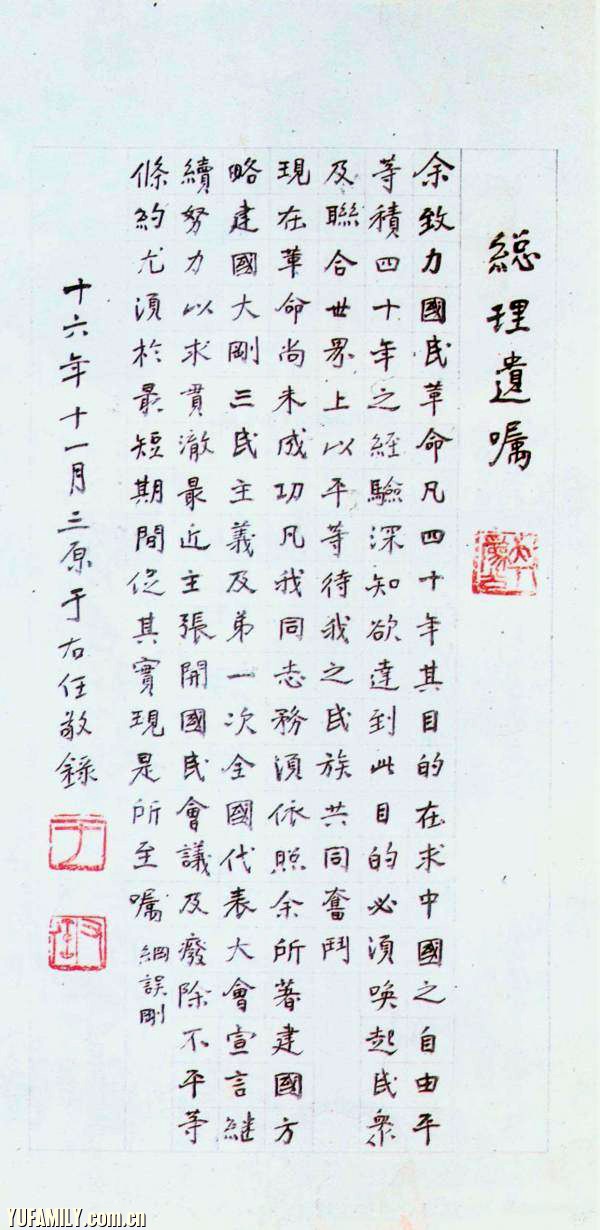 總理遺囑
余致力國民革命凡四十年其目的在求中國之自由平
等積四十年之經驗深知欲達到此目的必須喚起民衆
及聯合世界上以平等待我之民族共同奮鬥
現在革命尚未成功凡我同志務須依照余所著建國方
略建國大剛三民主義及第一次全國代表大會宣言繼
續努力以求貫澈最近主張開國民會議及廢除不平等
條約尤須於最短期間促其實現是所至囑
綱誤剛
十六年十一月三原于右任敬錄
YUFAMILY.com.cn